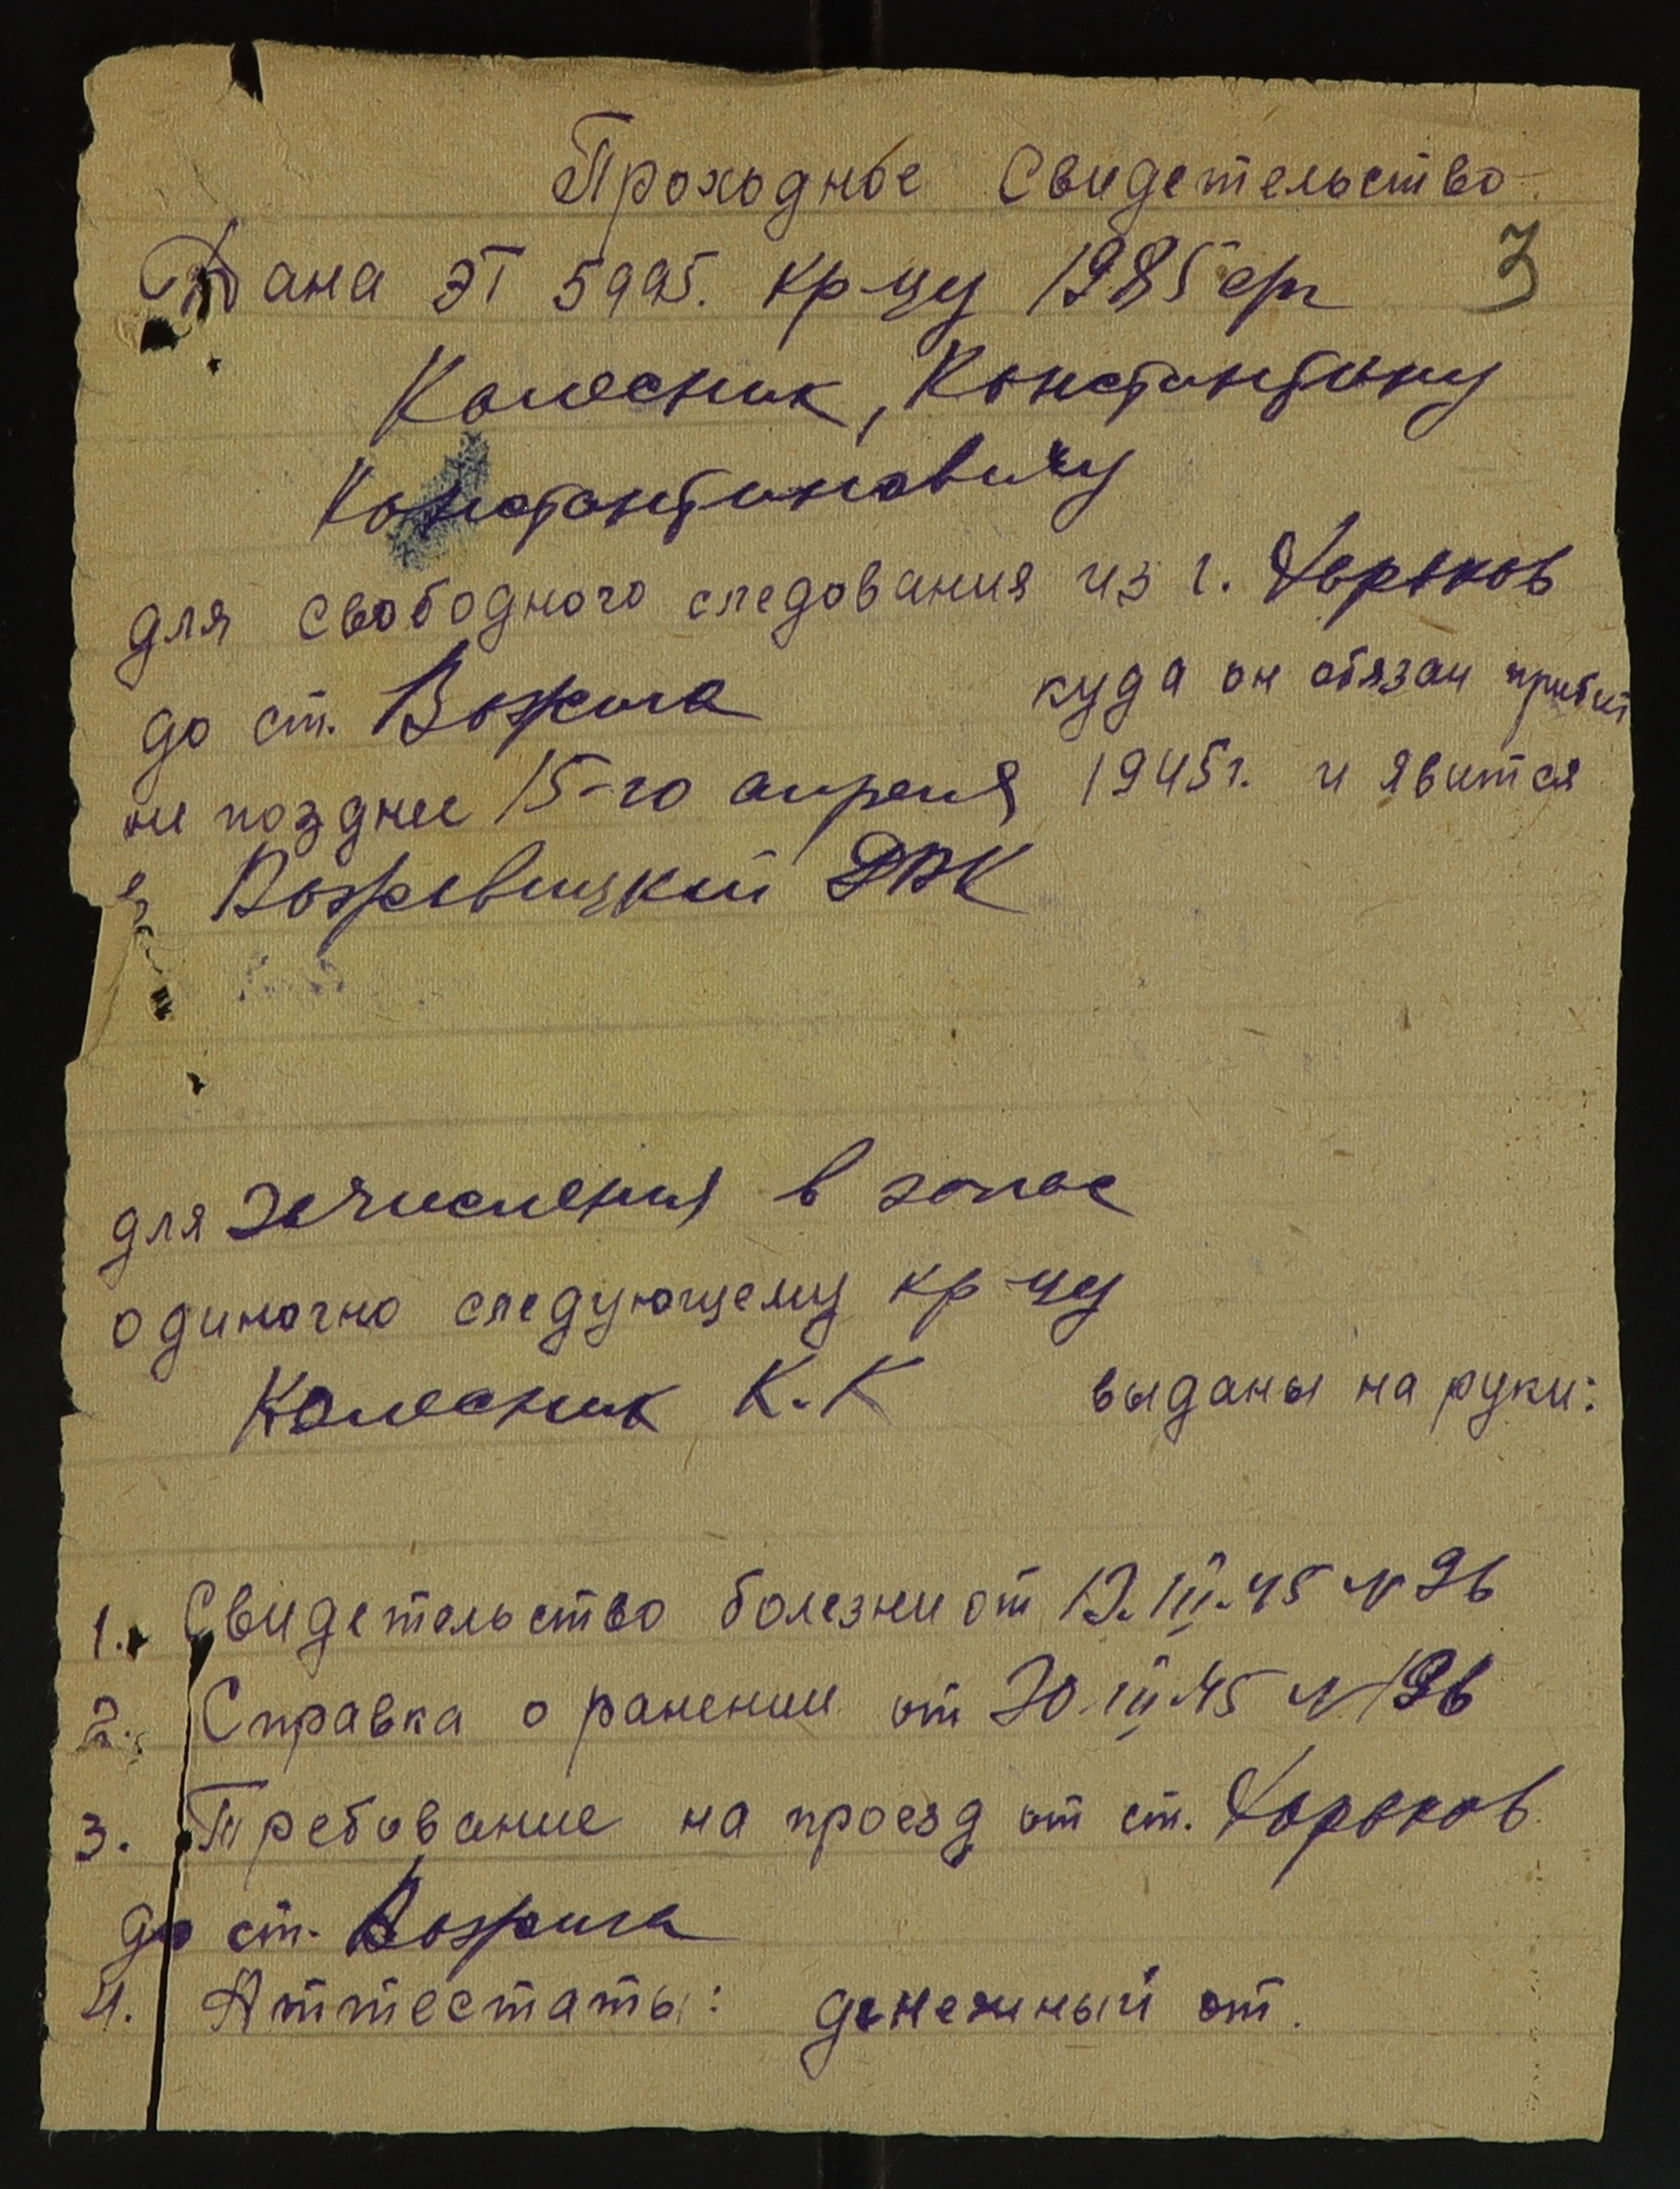 Проходное Свидетельство
3
Дана ЭГ 5995. кр-цу 1985 ср
Колесник, Константину
Константиновичу
для свободного следования из г. Харьков
до ст. Вожега куда он обязан прибыт
не позднее 15-го апреля 1945г. и явится
в Вожегицкий РВК
для зачисления в запас
одиночно следующему кр-цу
Колесник К.К выданы на руки:
1. Свидетельство болезни от 13.III.45 N 96
2. Справка о ранении от 30.III.45 N 196
3. Требование на проезд от ст. Харьков
до ст. Вожега
4. Аттестаты: денежный от.